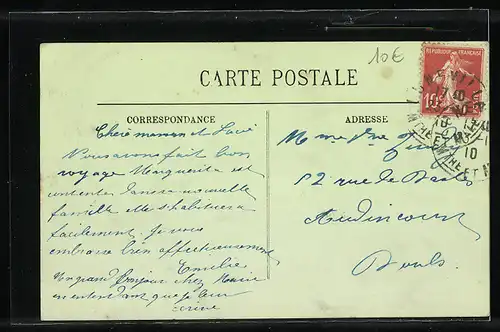 10€
CARTE POSTALE
REPUBLIQUE FRANÇAISE
10
CORRESPONDANCE
ADRESSE
Chère maman et
Nous avons fait bon
voyage Marguerite est
contente dans sa nouvelle
famille elle s'habituera
facilement. Je vous
embrasse bien affectueusement
Emilie
Un grand bonjour chez Marie
en entendant que je leur
écrive
Mme Vve
52 rue de
Audincourt
Doubs